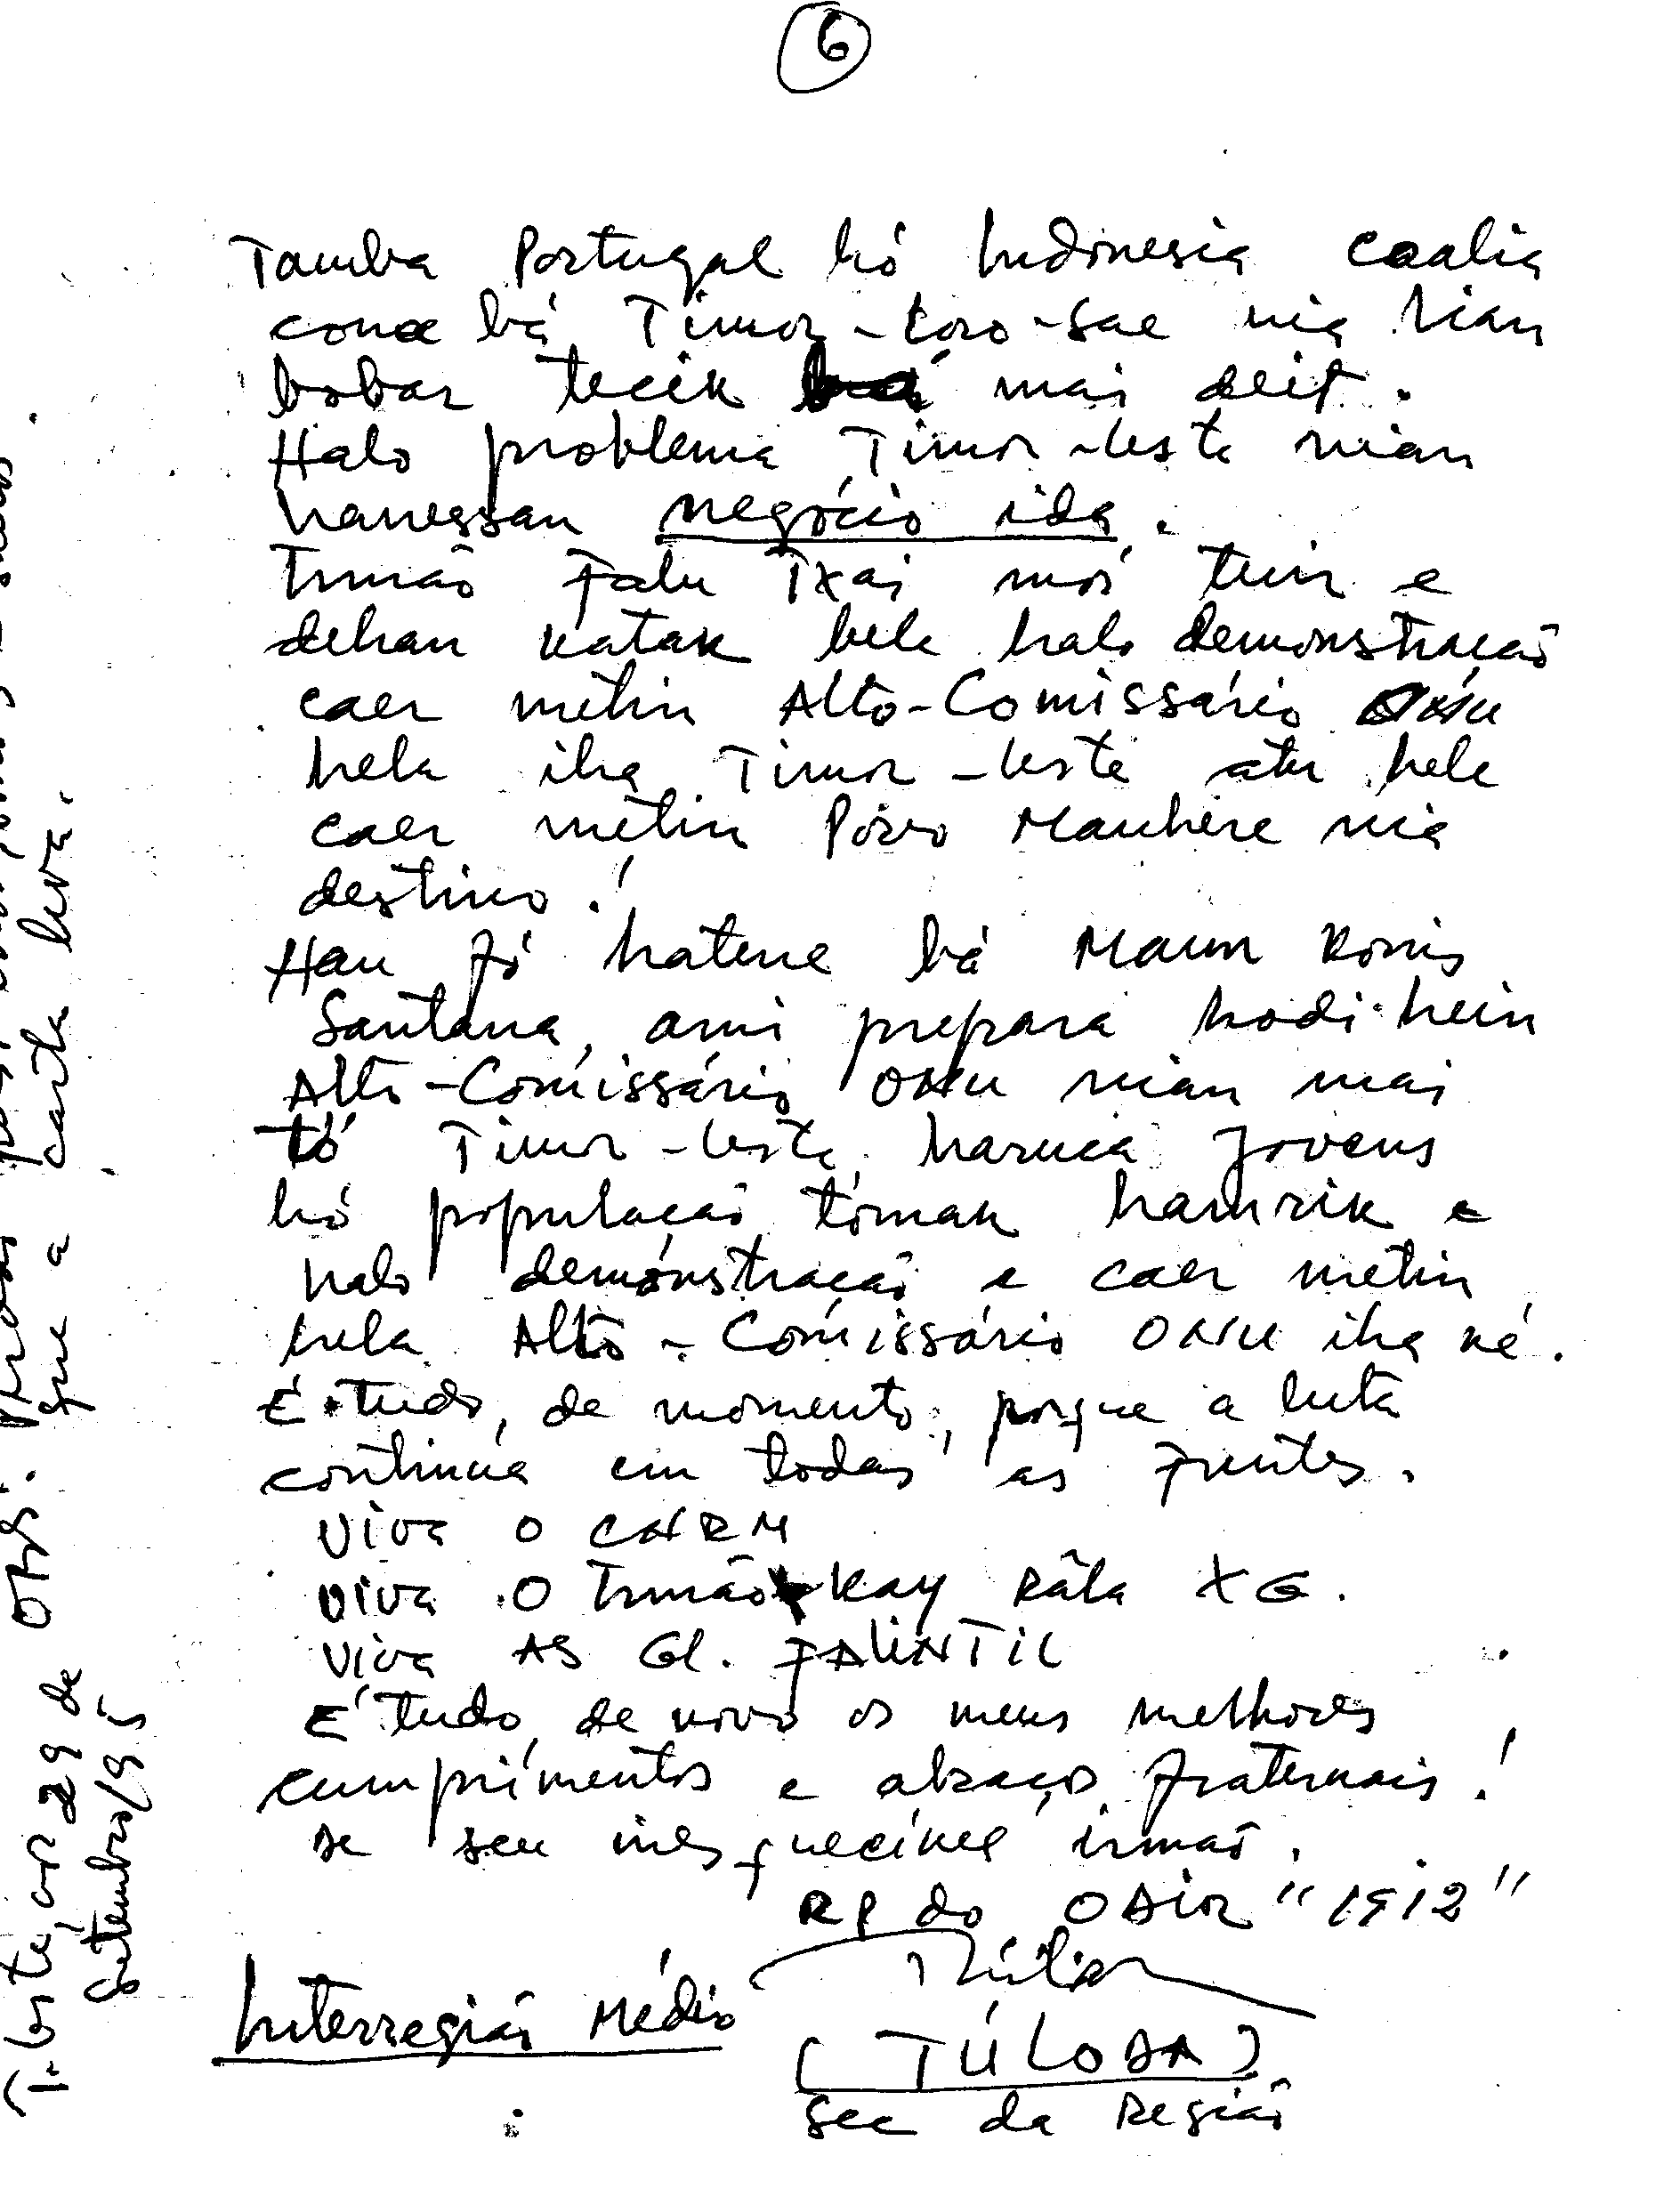 6
Tamba Portugal hó Indonesia coalia
cona bá Timor-Loro-Sae nia lian
bobar tecik mai deit.
Halo problema Timor-Leste nian
hanessan negócio ida.
Irmão Falu Txai mós tuir e
dehan katak bele halo demonstração
caer metin Alto-Comissário ONU
hela iha Timor-Leste atu bele
caer metin Povo Maubere nia
destino!
Hau fó hatene bá Maun Konis
Santana, ami prepara hodi hein
Alto-Comissário ONU nian mai
tó Timor-Leste, haruca Jovens
hó população tómak hamrik e
halo demonstração e caer metin
hela Alto-Comissário ONU iha né.
É tudo, de momento, porque a luta
continua em todas as Frentes.
Viva o CNRM
Viva o Irmão Kay Râla XG.
Viva AS Gl. FALINTIL
É tudo, de novo os meus melhores
cumprimentos e abraços fraternais!
de seu inesquecível irmão.
RP do ODIR "1912"
Interregião Médio
(TÚLODA)
Sec da Região
T. Leste, aos 29 de
Setembro/95
Obs:
que a carta leva.